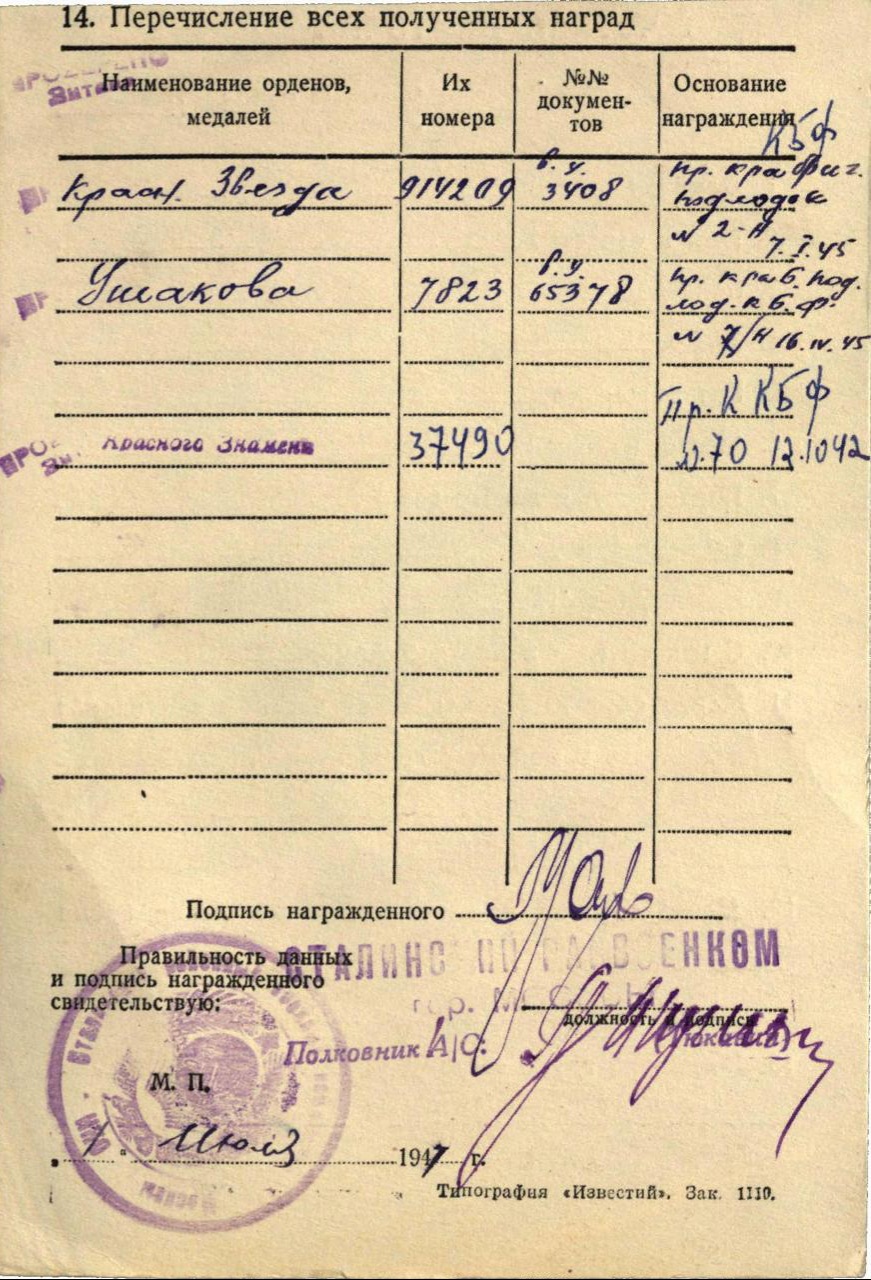 14. Перечисление всех полученных наград
Наименование орденов, медалей
Их номера
№№ докумен-тов
Основание награждения
КБФ
Красн. Звезда 914209 в. у. 3408 пр.
подлодок
N 2-н
7.I.45
Ушакова 7823 в. у. 65378 пр. к-ра б. под.
лод. К Б. Ф.
N 7/н 16.IV.45
Пр. К КБФ
Красного Знамени 37490 N.70 12.1042
Подпись награжденного
Правильность данных
и подпись награжденного
свидетельствую:
ВОЕНКОМ
гор.
должность и подпись
Полковник А/С.
М. П.
1 " Июля 1947 г.
Типография «Известий». Зак. 1110.